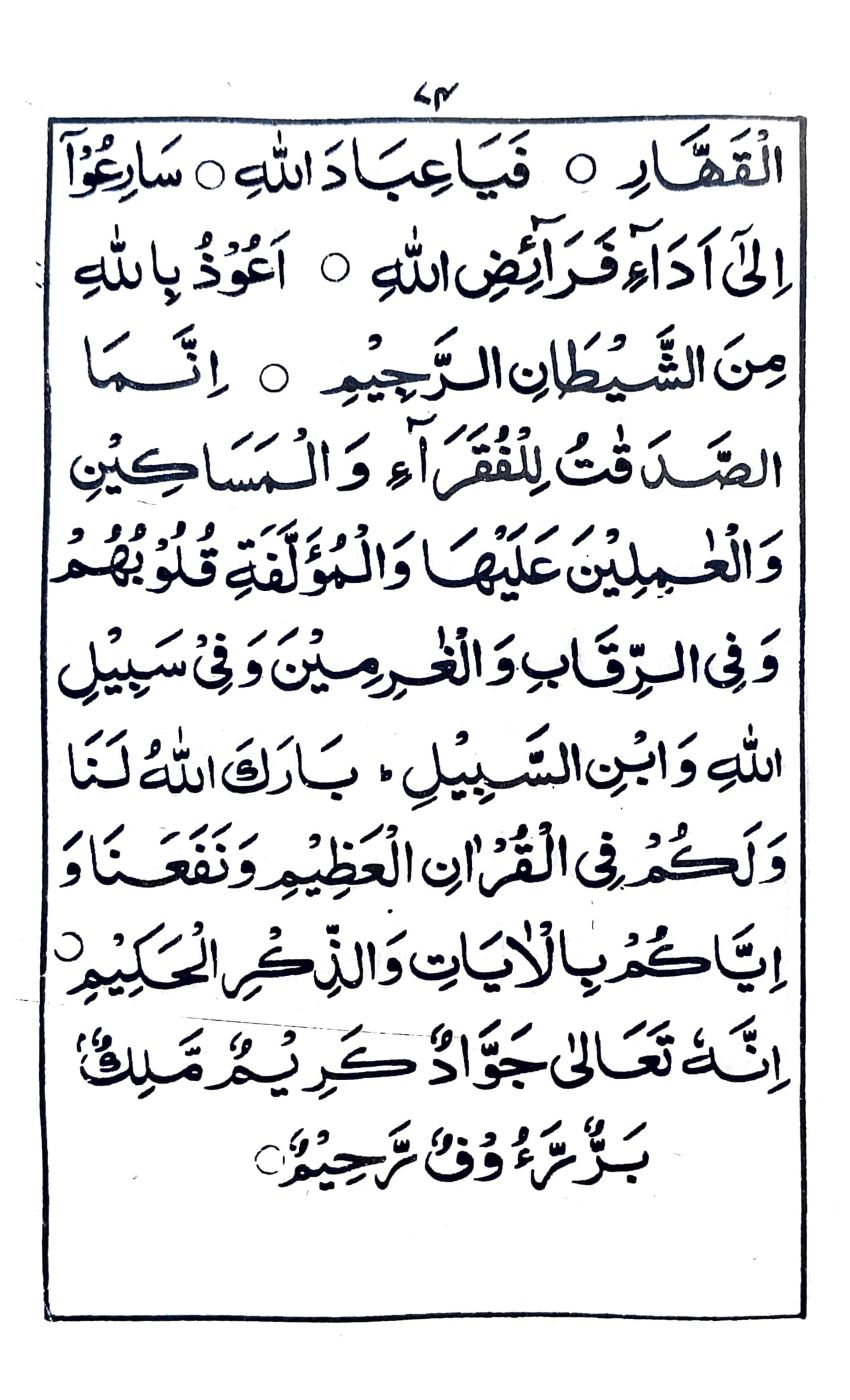 ۷۴
الْقَهَّارِ ○ فَيَا عِبَادَ اللّٰهِ ○ سَارِعُوْآ
اِلٰٓى اَدَآءِ فَرَآئِضِ اللّٰهِ ○ اَعُوْذُ بِاللّٰهِ
مِنَ الشَّيْطَانِ الرَّجِيْمِ ○ اِنَّمَا
الصَّدَقٰتُ لِلْفُقَرَآءِ وَالْمَسَاكِيْنِ
وَالْعٰمِلِيْنَ عَلَيْهَا وَالْمُؤَلَّفَةِ قُلُوْبُهُمْ
وَفِى الرِّقَابِ وَالْغٰرِمِيْنَ وَفِىْ سَبِيْلِ
اللّٰهِ وَابْنِ السَّبِيْلِ ط بَارَكَ اللّٰهُ لَنَا
وَلَكُمْ فِى الْقُرْاٰنِ الْعَظِيْمِ وَنَفَعَنَا وَ
اِيَّاكُمْ بِالْاٰيَاتِ وَالذِّكْرِ الْحَكِيْمِ ○
اِنَّهٗ تَعَالٰى جَوَّادٌ كَرِيْمٌ مَّلِكٌۢ
بَرٌّ رَّءُوْفٌ رَّحِيْمٌ ○